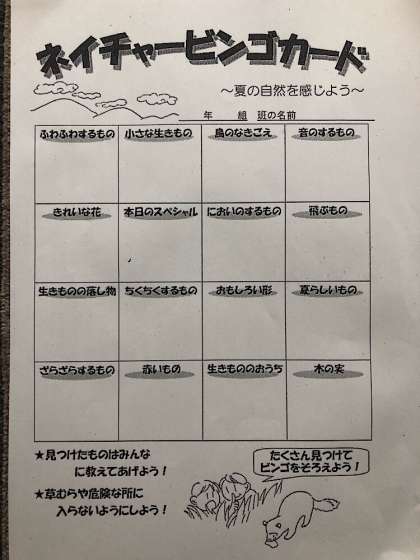 ネイチャービンゴカード
～夏の自然を感じよう～
年 組 班の名前
ふわふわするもの 小さな生きもの 鳥のなきごえ 音のするもの
きれいな花 本日のスペシャル においのするもの 飛ぶもの
生きものの落し物 ちくちくするもの おもしろい形 夏らしいもの
ざらざらするもの 赤いもの 生きもののおうち 木の実
★見つけたものはみんな
に教えてあげよう！
★草むらや危険な所に
入らないようにしよう！
たくさん見つけて
ビンゴをそろえよう！